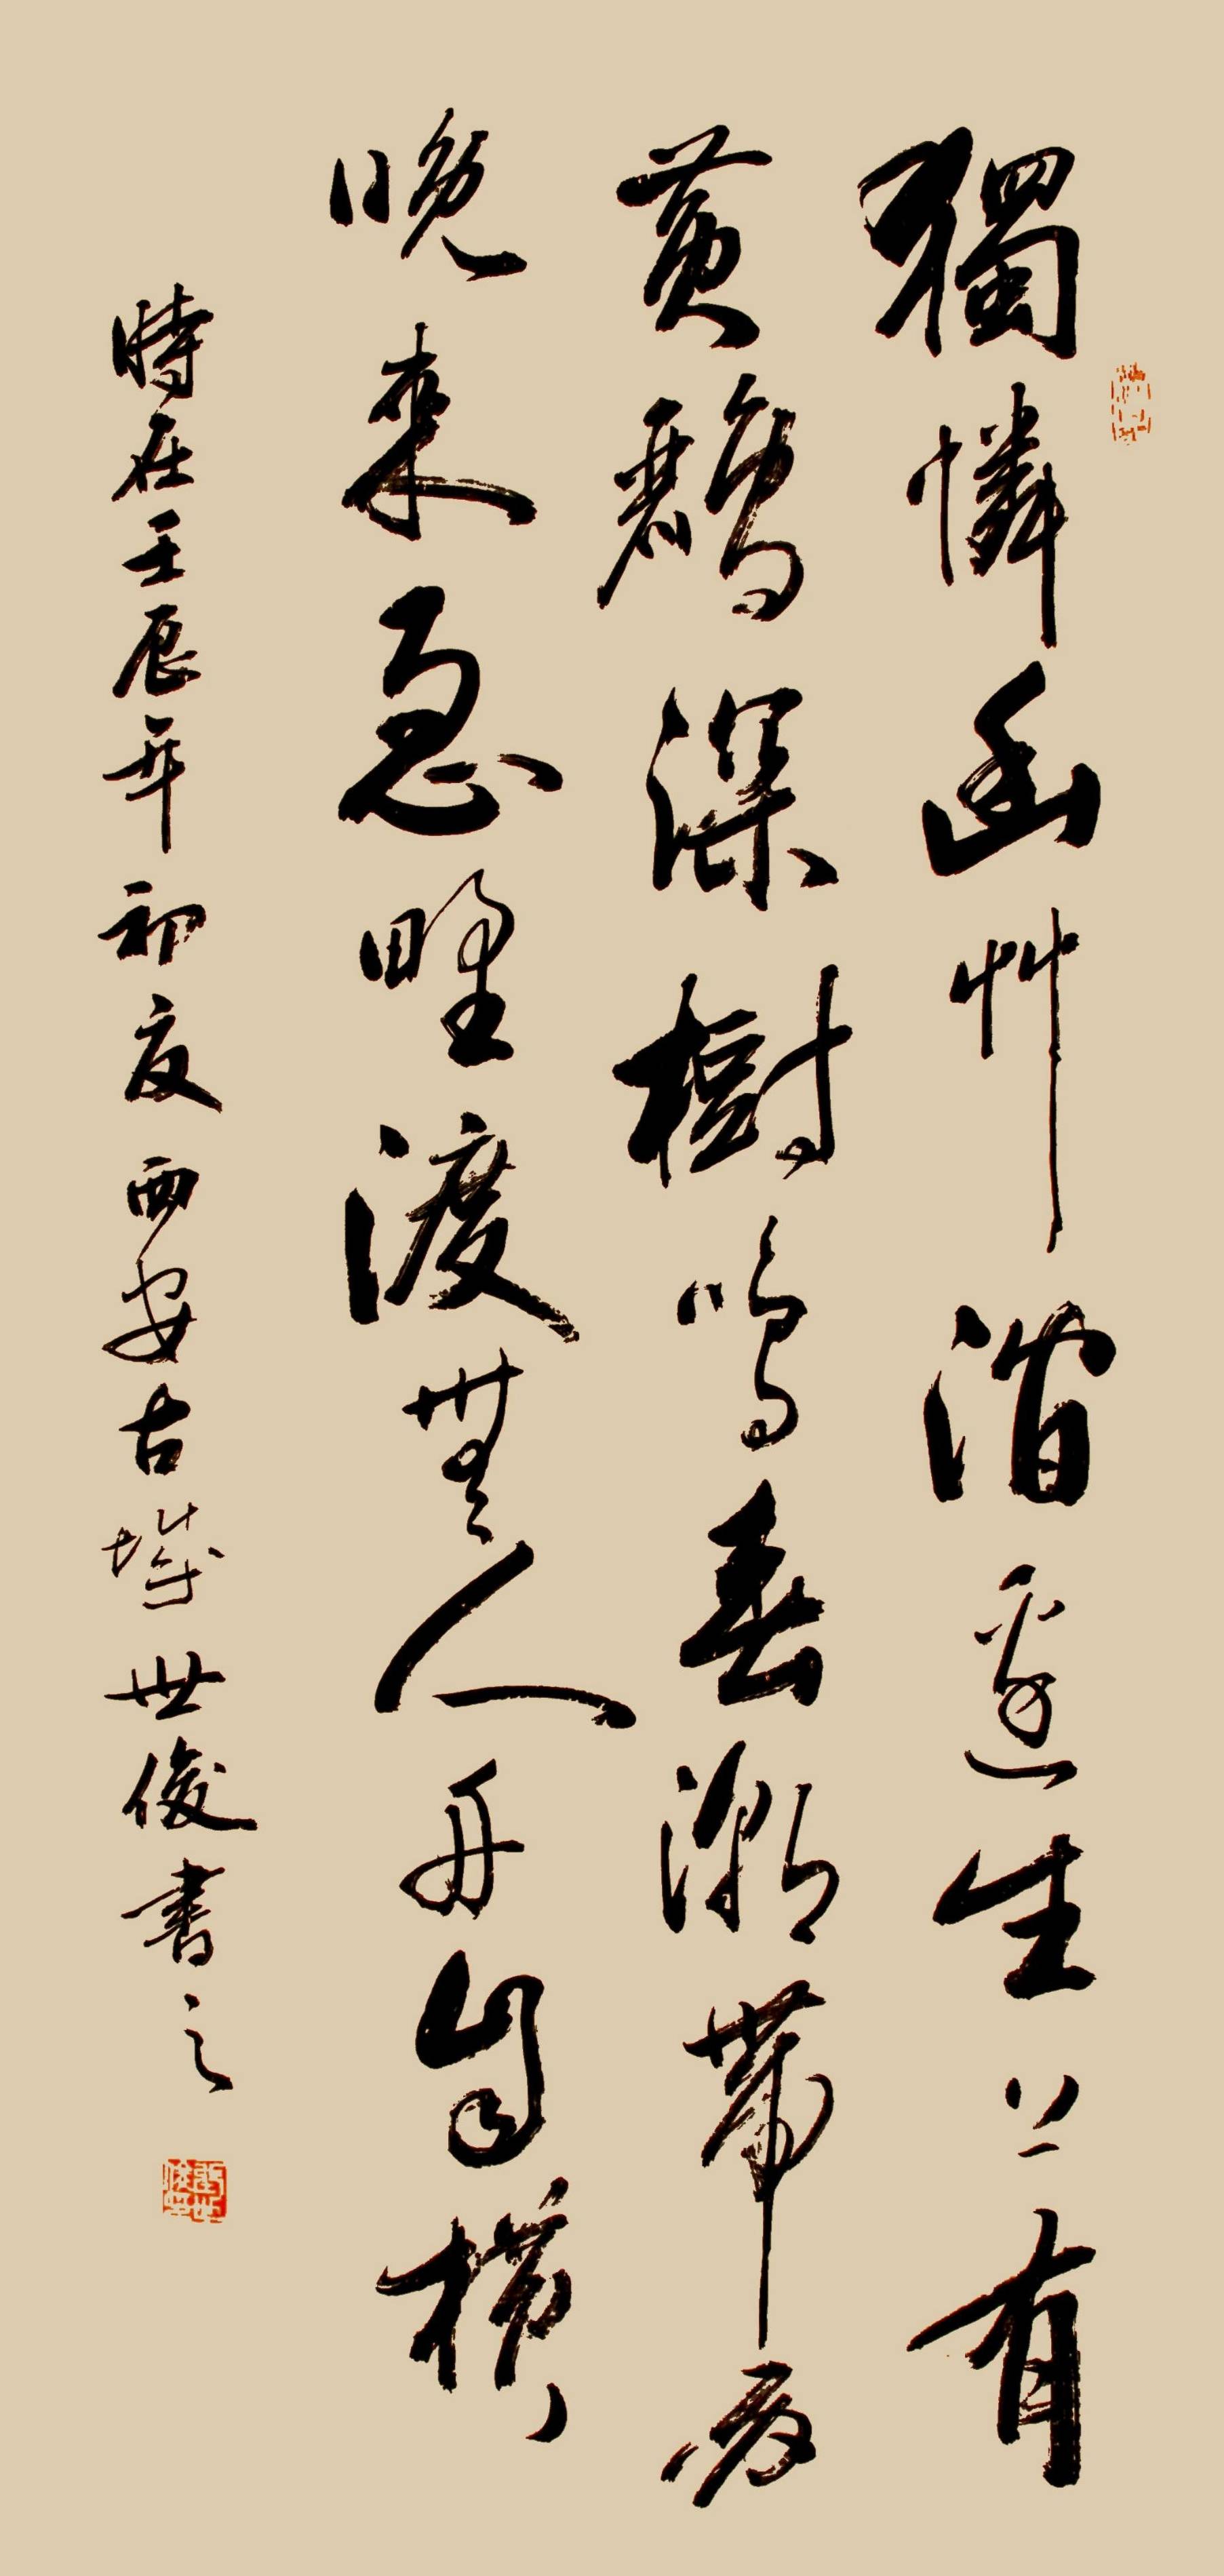 獨憐幽艸澗邊生上有
黄鸝深樹鳴春潮帶雨
晚来急野渡無人舟自橫
時在壬辰年初夏西安古城世俊書之